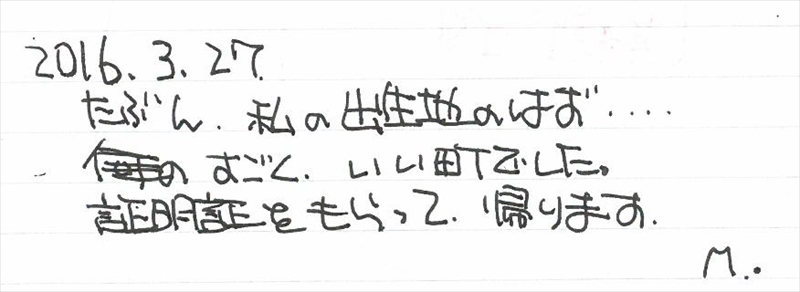 2016.3.27.
たぶん、私の出生地のはず‥‥
すごく、いい町でした。
証明証をもらって、帰ります。
M.